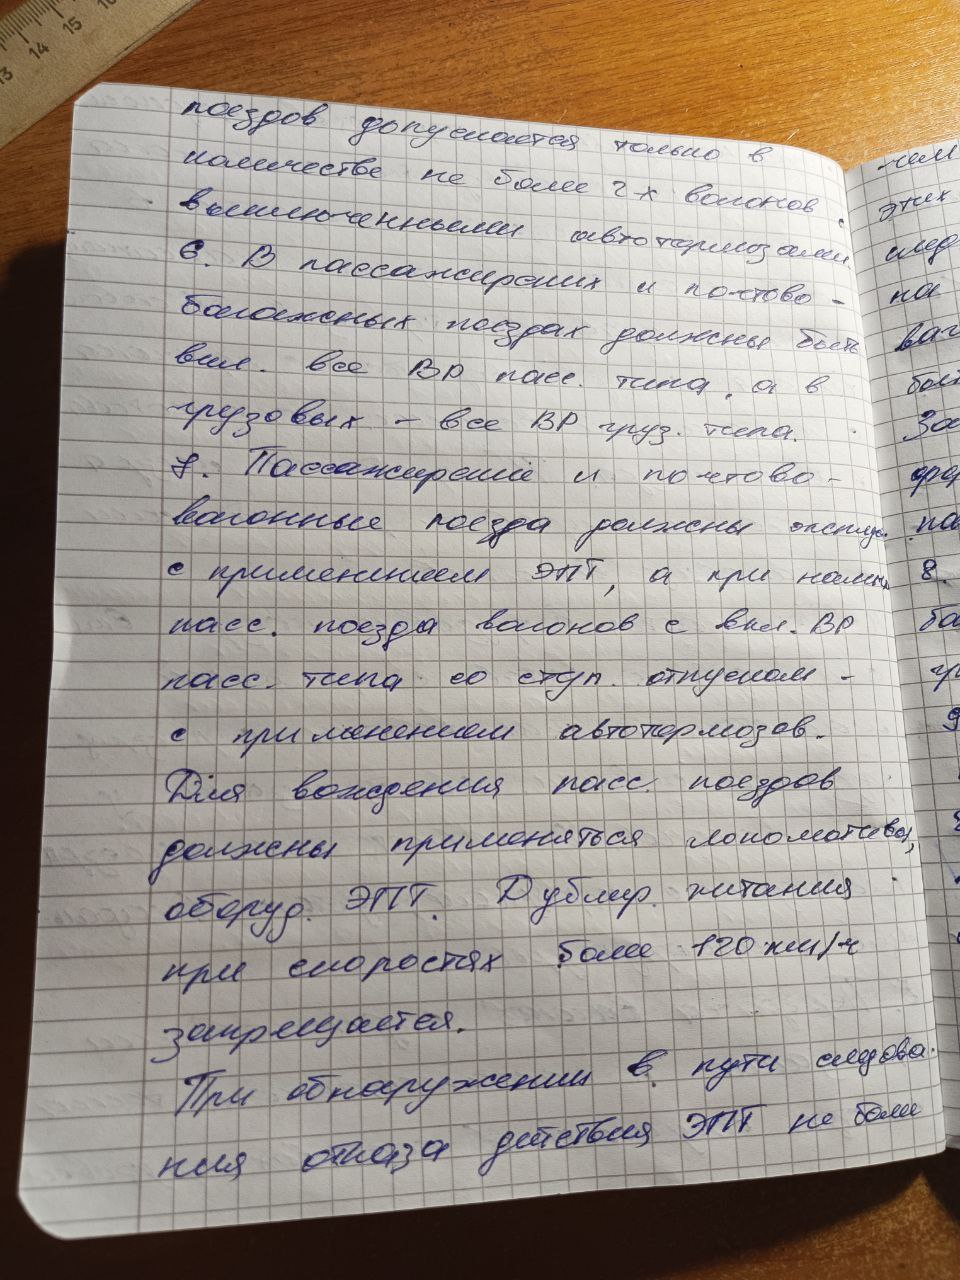 поездов допускается только в
количестве не более 2-х вагонов с
выключенными автотормозами.
6. В пассажирских и почтово -
багажных поездах должны быть
вкл. все ВР пасс. типа, а в
грузовых - все ВР груз. типа.
7. Пассажирские и почтово -
вагонные поезда должны эксплуа.
с применением ЭПТ, а при налич.
пасс. поезда вагонов с вкл. ВР
пасс. типа со ступ. отпуском -
с применением автотормозов.
Для вождения пасс. поездов
должны применяться локомотивы,
оборуд. ЭПТ. Дублир. питания
при скоростях более 120 км/ч
запрещается.
При обнаружении в пути следова-
ния отказа действия ЭПТ не более
чем
этих
след
на
ваг
бол
За
фор
па
8.
ба
гр
9
13 14 15 16